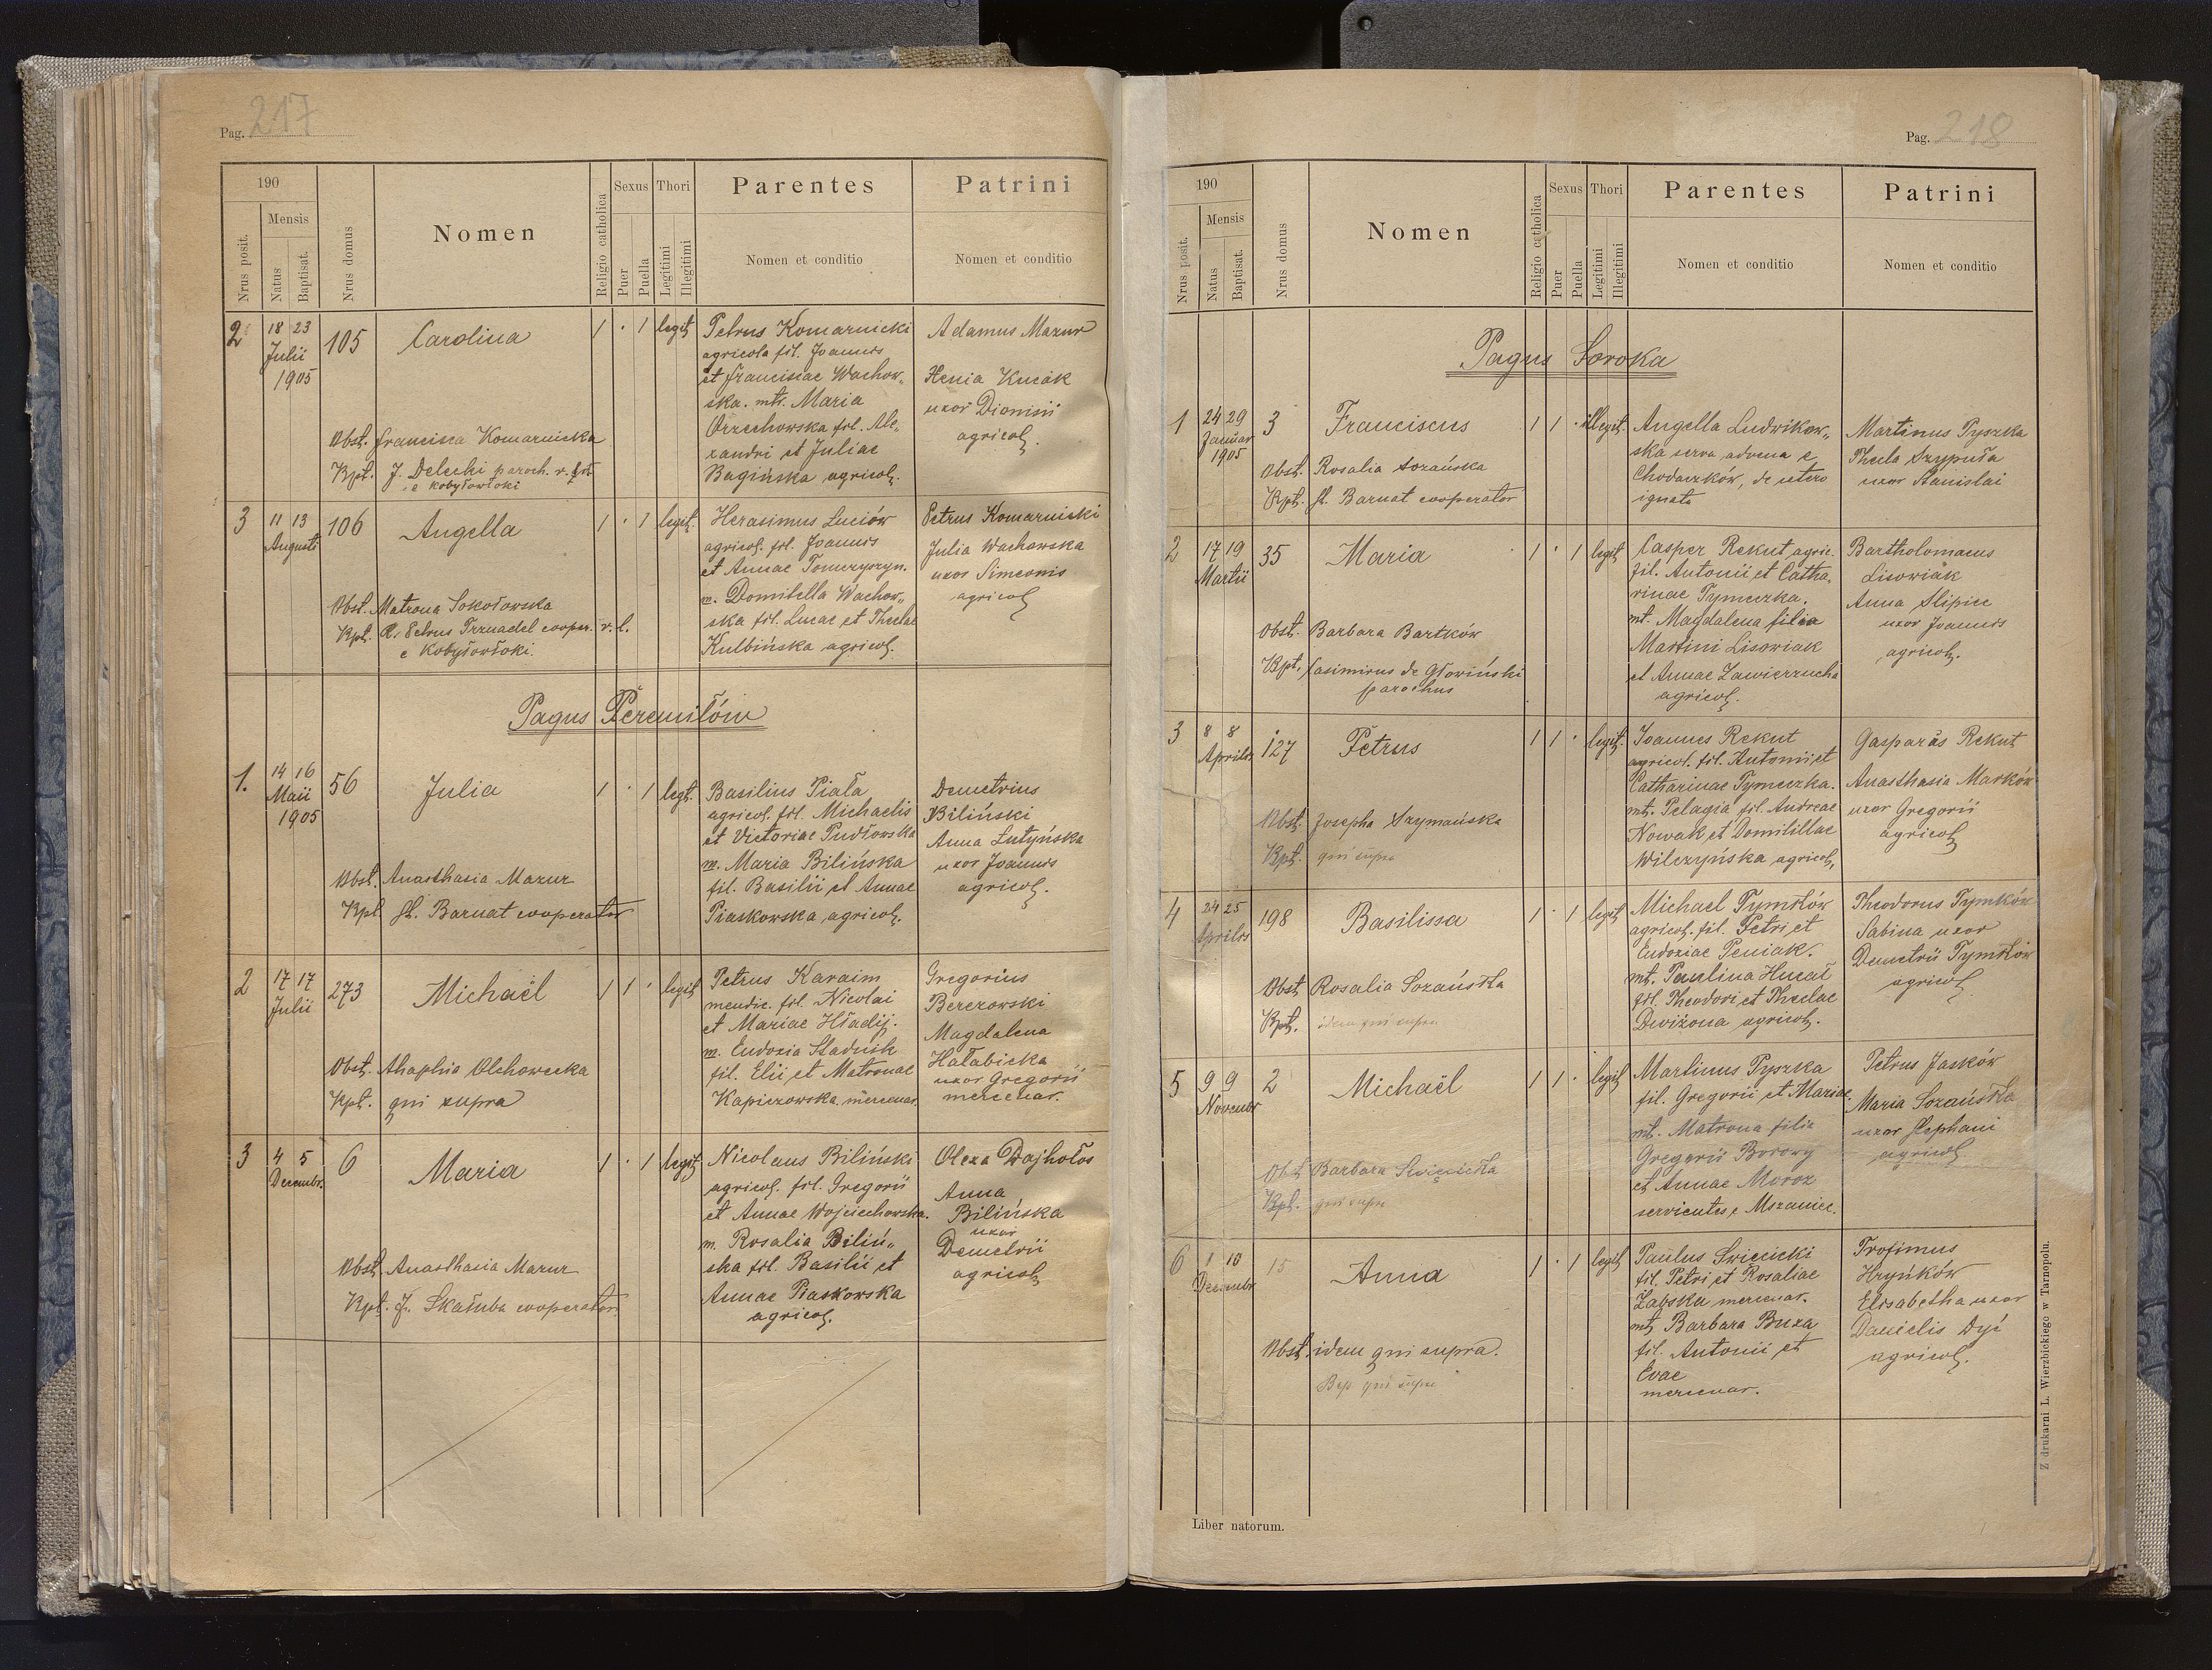 Pag. 217
190
Nrus posit.
Mensis
Natus
Baptisat.
Nrus domus
Nomen
Religio catholica
Sexus
Puer
Puella
Thori
Legitimi
Illegitimi
Parentes
Nomen et conditio
Patrini
Nomen et conditio
2
18 23
Julii
1905
105
Carolina
1 · 1 legit
Obst. Francisca Komarnicka
Bpt. J. Delecki paroch. r. lat.
e Kobyłowłoki
Petrus Komarnicki
agricola fil. Joannis
et Franciscae Wachow„
ska. mtr. Maria
Orzechowska fil. Ale„
xandri et Juliae
Bagińska agricol.
Adamus Mazur
Xenia Kucak
uxor Dionisii
agricol.
3
11 13
Augusti
106
Angella
1 · 1 legit.
Obst. Matrona Sokołowska
Bpt. R. Petrus Trznadel cooper. r. l.
e Kobyłowłoki.
Herasimus Luciów
agricol. fil. Joannis
et Annae Tomczyszyn.
m. Domitella Wachow„
ska fil. Lucae et Theclae
Kulbińska agricol.
Petrus Komarnicki
Julia Wachowska
uxor Simeonis
agricol
Pagus Peremiłów
1.
14 16
Maii
1905
56
Julia
1 · 1 legt.
Obst. Anasthasia Mazur
Bpt. St. Barnat cooperator
Basilius Piała
agricol. fil. Michaelis
et Victoriae Pudłowska
m. Maria Bilińska
fil. Basilii et Annae
Piaskowska agricol.
Demetrius
Biliński
Anna Łutyńska
uxor Joannis
agricol.
2
17 17
Julii
273
Michaël
1 1 · legit
Obst. Ahaphia Olchowecka
Bpt. qui supra
Petrus Karaim
mendic. fil. Nicolai
et Mariae Hładij.
m. Eudoxia Stadnik
fil. Elii et Matronae
Kapiczowska mercenar.
Gregorius
Berezowski
Magdalena
Hałabicka
uxor Gregorii
mercenar.
3
4 5
Decembr.
6
Maria
1 · 1 legit
Obst. Anasthasia Mazur
Bpt. J. Skałuba cooperator
Nicolaus Biliński
agricol. fil. Gregorii
et Annae Wojciechowska.
m. Rosalia Biliń„
ska fil. Basilii et
Annae Piaskowska
agricol.
Olexa Dajhołos
Anna
Bilińska
uxor
Demetrii
agricol
Pag. 218
190
Nrus posit.
Mensis
Natus
Baptisat.
Nrus domus
Nomen
Religio catholica
Sexus
Puer
Puella
Thori
Legitimi
Illegitimi
Parentes
Nomen et conditio
Patrini
Nomen et conditio
Pagus Soroka
1
24 29
Januar
1905
3
Franciscus
1 1 · illegit.
Obst. Rosalia Sozańska
Bpt. St. Barnat cooperator
Angella Ludwikow„
ska serva advena e
Chodaczków, de utero
ignato
Martinus Tyszka
Thecla Szypuła
uxor Stanislai
2
17 19
Martii
35
Maria
1 · 1 legit
Obst. Barbara Bartków
Bpt. Casimirus de Głowiński
parochus
Casper Rekut agric.
fil. Antonii et Catha„
rinae Tymczka.
mt. Magdalena filia
Martini Lisowiak
et Annae Zawierzucha
agricol.
Bartholomaeus
Lisowiak
Anna Slipiec
uxor Joannis
agricol.
3
8 8
Aprilis
127
Petrus
1 1 · legit.
Obst. Josepha Szymańska
Bpt. qui supra
Joannes Rekut
agricol. fil. Antonii et
Catharinae Tymczka.
mt. Pelagia fil. Andreae
Nowak et Domitillae
Wilczyńska agricol,
Gasparus Rekut
Anasthasia Marków
uxor Gregorii
agricol
4
24 25
Aprilis
198
Basilissa
1 · 1 legit
Obst Rosalia Sozańska
Bpt. idem qui supra
Michael Tymków
agricol. fil. Petri et
Eudoxiae Peniak.
mt. Paulina Hucał
fil. Theodori et Theclae
Diwiżona agricol.
Theodorus Tymków
Sabina uxor
Demetrii Tymków
agricol
5
9 9
Novembr
2
Michaël
1 1 · legit
Obst Barbara Swięcicka
Bpt. qui supra
Martinus Tyszka
fil. Gregorii et Mariae.
mt. Matrona filia
Gregorii Borowy
et Annae Moroz
servientes e Mszaniec.
Petrus Jasków
Maria Sozańska
uxor Stephani
agricol
6
1 10
Decembr
15
Anna
1 · 1 legit
Obst. idem qui supra.
Bap. qui supra
Paulus Swiecicki
fil. Petri et Rosaliae
Żabska mercenar.
mt Barbara Buza
fil. Antonii et
Evae
mercenar.
Trofimus
Hryńków
Elisabetha uxor
Danielis Dyć
agricol.
Liber natorum.
Z drukarni L. Wierzbickiego w Tarnopolu.